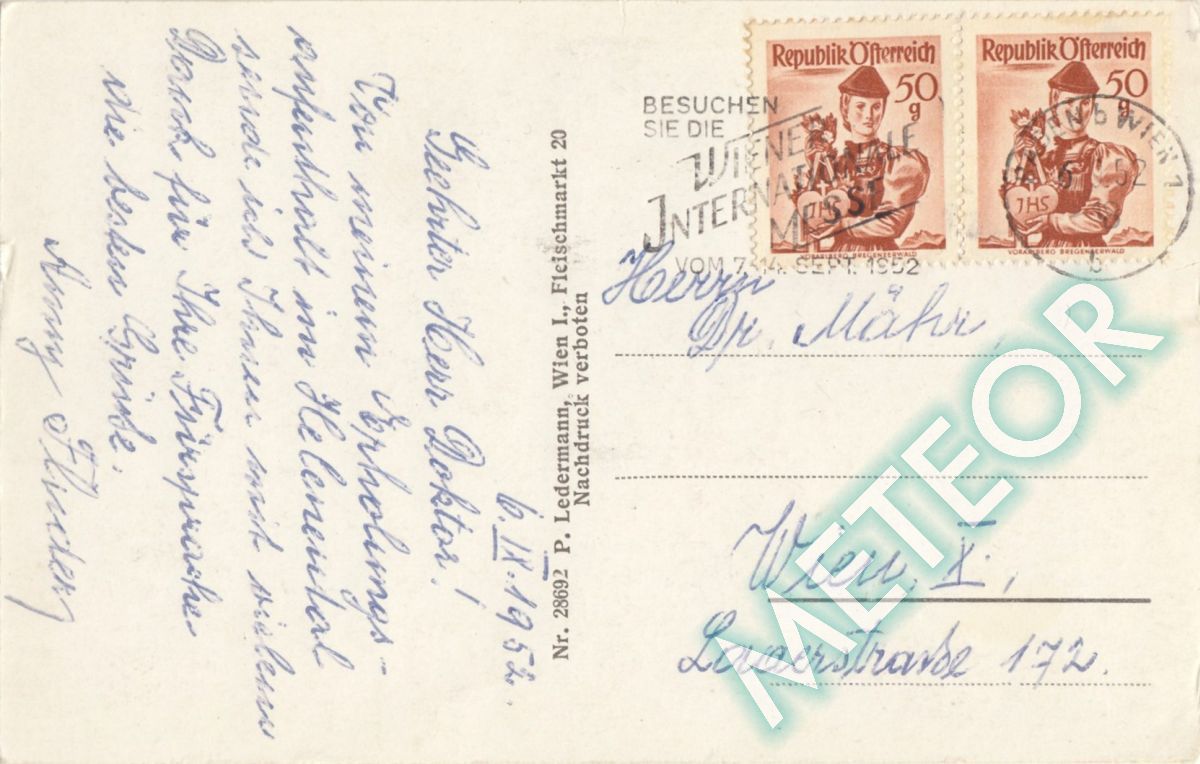 6.IX.1952.
Geehrter Herr Doktor!
Von meinem Erholungs-
aufenthalt im Helenental
sende ich Ihnen mit vielem
Dank für Ihre Fürsprache
die besten Grüße.
Nr. 28692 P. Ledermann, Wien I., Fleischmarkt 20
Nachdruck verboten
BESUCHEN
SIE DIE
WIENER
INTERNATIONALE
MESSE
VOM 7.-14. SEPT. 1952
Republik Österreich
50
g
JHS
VORARLBERG BREGENZERWALD
Republik Österreich
50
g
JHS
VORARLBERG BREGENZERWALD
BADEN b WIEN 1
52
b
Herrn
Dr. Mähr,
Wien, X.,
Laaerstraße 172.
METEOR